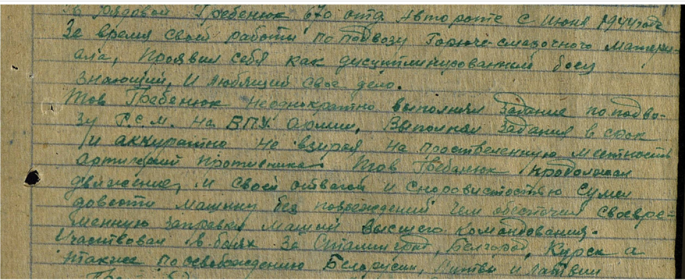 рядовой Гребенюк 670 отд. Автороте с июня 1944 года
За время своей работы по подвозу Горюче-смазочного матери-
ала, проявил себя как дисциплинированный боец
знающий и любящий свое дело.
Тов Гребенюк неоднократно выполнял задание по подво-
зу Г.С.М. на ВПУ Армии, Выполнял задания в срок
и аккуратно не взирая на местность
артилерией противника. Тов Гребенюк продолжал
движение, и своей отвагой и сноровистостью сумел
довести машину без повреждений чем обеспечил своевре-
менную заправку машин высшего командования.
Участвовал в боях за Сталинград, Белгород, Курск а
также по освобождению Белорусии, Литвы и Латвии